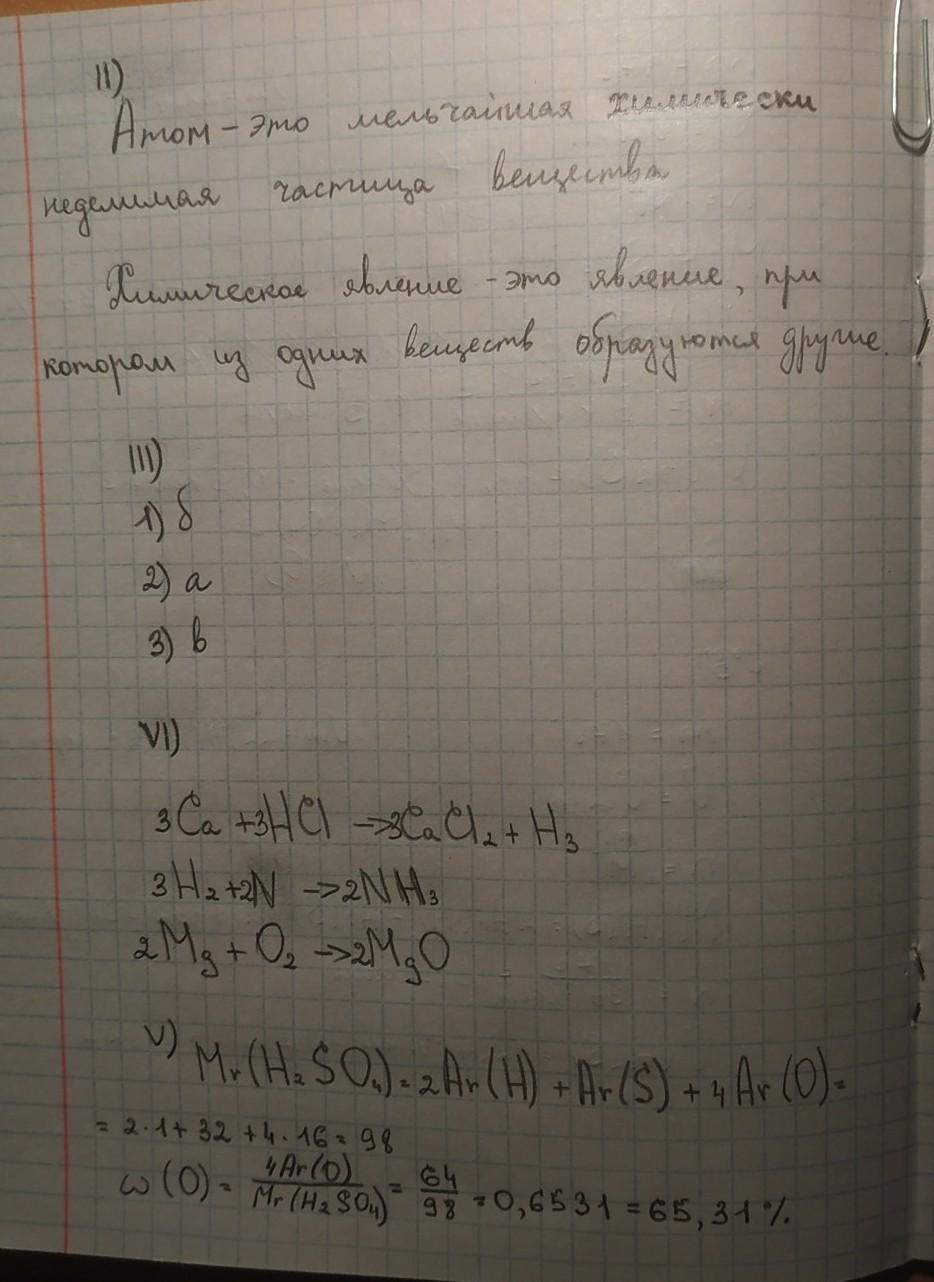 II)
Атом - это мельчайшая химически
неделимая частица вещества
Химическое явление - это явление, при
котором из одних веществ образуются другие.
III)
1) б
2) а
3) в
VI)
3Ca + 3HCl → 3CaCl₂ + H₃
3H₂ + 2N → 2NH₃
2Mg + O₂ → 2MgO
V) Mr(H₂SO₄) = 2Ar(H) + Ar(S) + 4Ar(O) =
= 2·1 + 32 + 4·16 = 98
ω(O) = 4Ar(O)/Mr(H₂SO₄) = 64/98 = 0,6531 = 65,31%